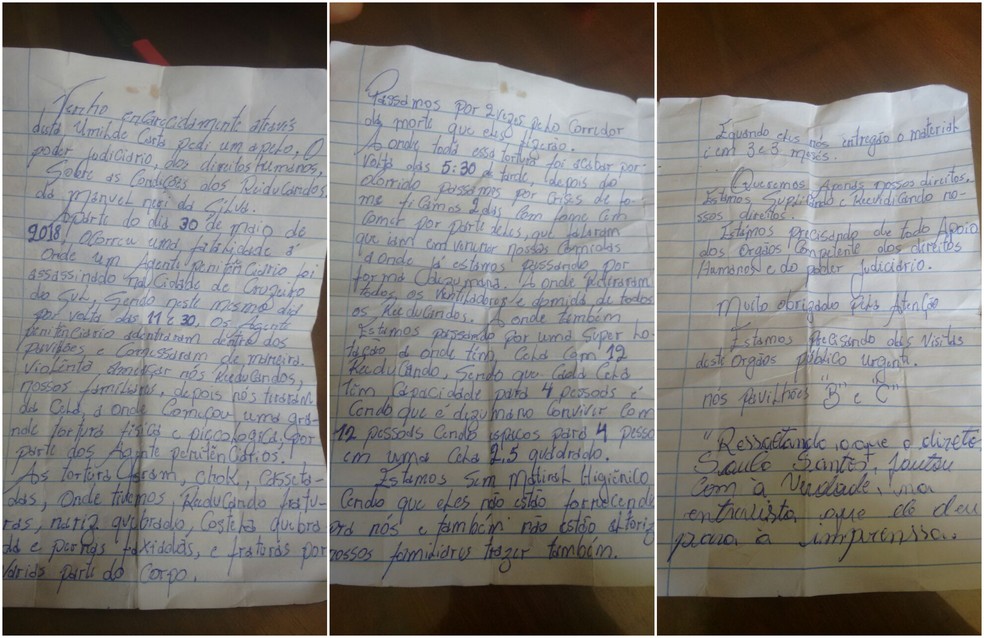 Venho encarecidamente através
desta Umilde Carta pedi um apelo, O
poder judiciário, dos direitos Humanos,
Sobre as Condições dos Reeducandos
da manuel neri da Silva.
Aparte do dia 30 de maio de
2018, Ocorreu uma fatalidade á
Onde um Agente penitênciario foi
assassinado na Cidade de Cruzeiro
do Sul, Sendo neste mesmo dia
por volta das 11 e 30, os Agente
penitênciario adentraram dentro dos
pavilhões e Começaram de maneira
violenta nós Reeducandos,
nossos familiares, depois nós tiraram
da Cela, a onde Começou, uma gra-
nde tortura fisica e picologica, por
parte dos Agente penitênciarios.
As tortura foram, chok, Casseta-
das, Onde tivemos Reeducando fratu-
ras, nariz quebrado, Costela quebra
da e pernas e fraturas por
várias parte do Corpo.
Passamos por 2 vezes pelo Corredor
da morte que eles fizerão.
A onde toda essa tortura foi acabar por
Volta das 5:30 da tarde, depois do
ocorrido passamos por Crises de fo-
me ficamos 2 dias com fome Cem
Comer por parte deles, que falaram
que iam em venenar nossas Comidas
a Onde já estamos passando por
forma Dezumana. A onde retiraram
todos os Ventiladores e domida de todos
os Reeducandos. A onde também
Estamos passando por uma Super Lo-
tação a onde tem, Cela Com 12
Reeducando, Sendo que Cada Cela
têm Capacidade para 4 pessoas é
Cendo que é dezumano Conviver Com
12 pessoas Cendo espaços para 4 pesso
em uma Cela 2,5 quadrado.
Estamos Sem Matirah Higiênico
Cendo que eles não estão fornecendo
pra nós e também não estão altoriz
nossos familiares trazer também.
Equando eles nós entregão o material
i em 3 e 3 meses.
Queremos Apenas nossos direitos,
Estamos Suplicando e Reevidicando no-
ssos direitos.
Estamos precisando de todo Apoio
dos Orgãos Competente dos direitos
Humanos e do poder judiciário.
Muito obrigado pela Atenção
Estamos precisando das Visitas
deste Orgãos público Urgente.
nos pavilhões "B" e "C"
"Ressaltando, oque o direto
Saulo Santos, faltou
Com à Verdade, na
entrevista que ele deu
para à imprenssa.